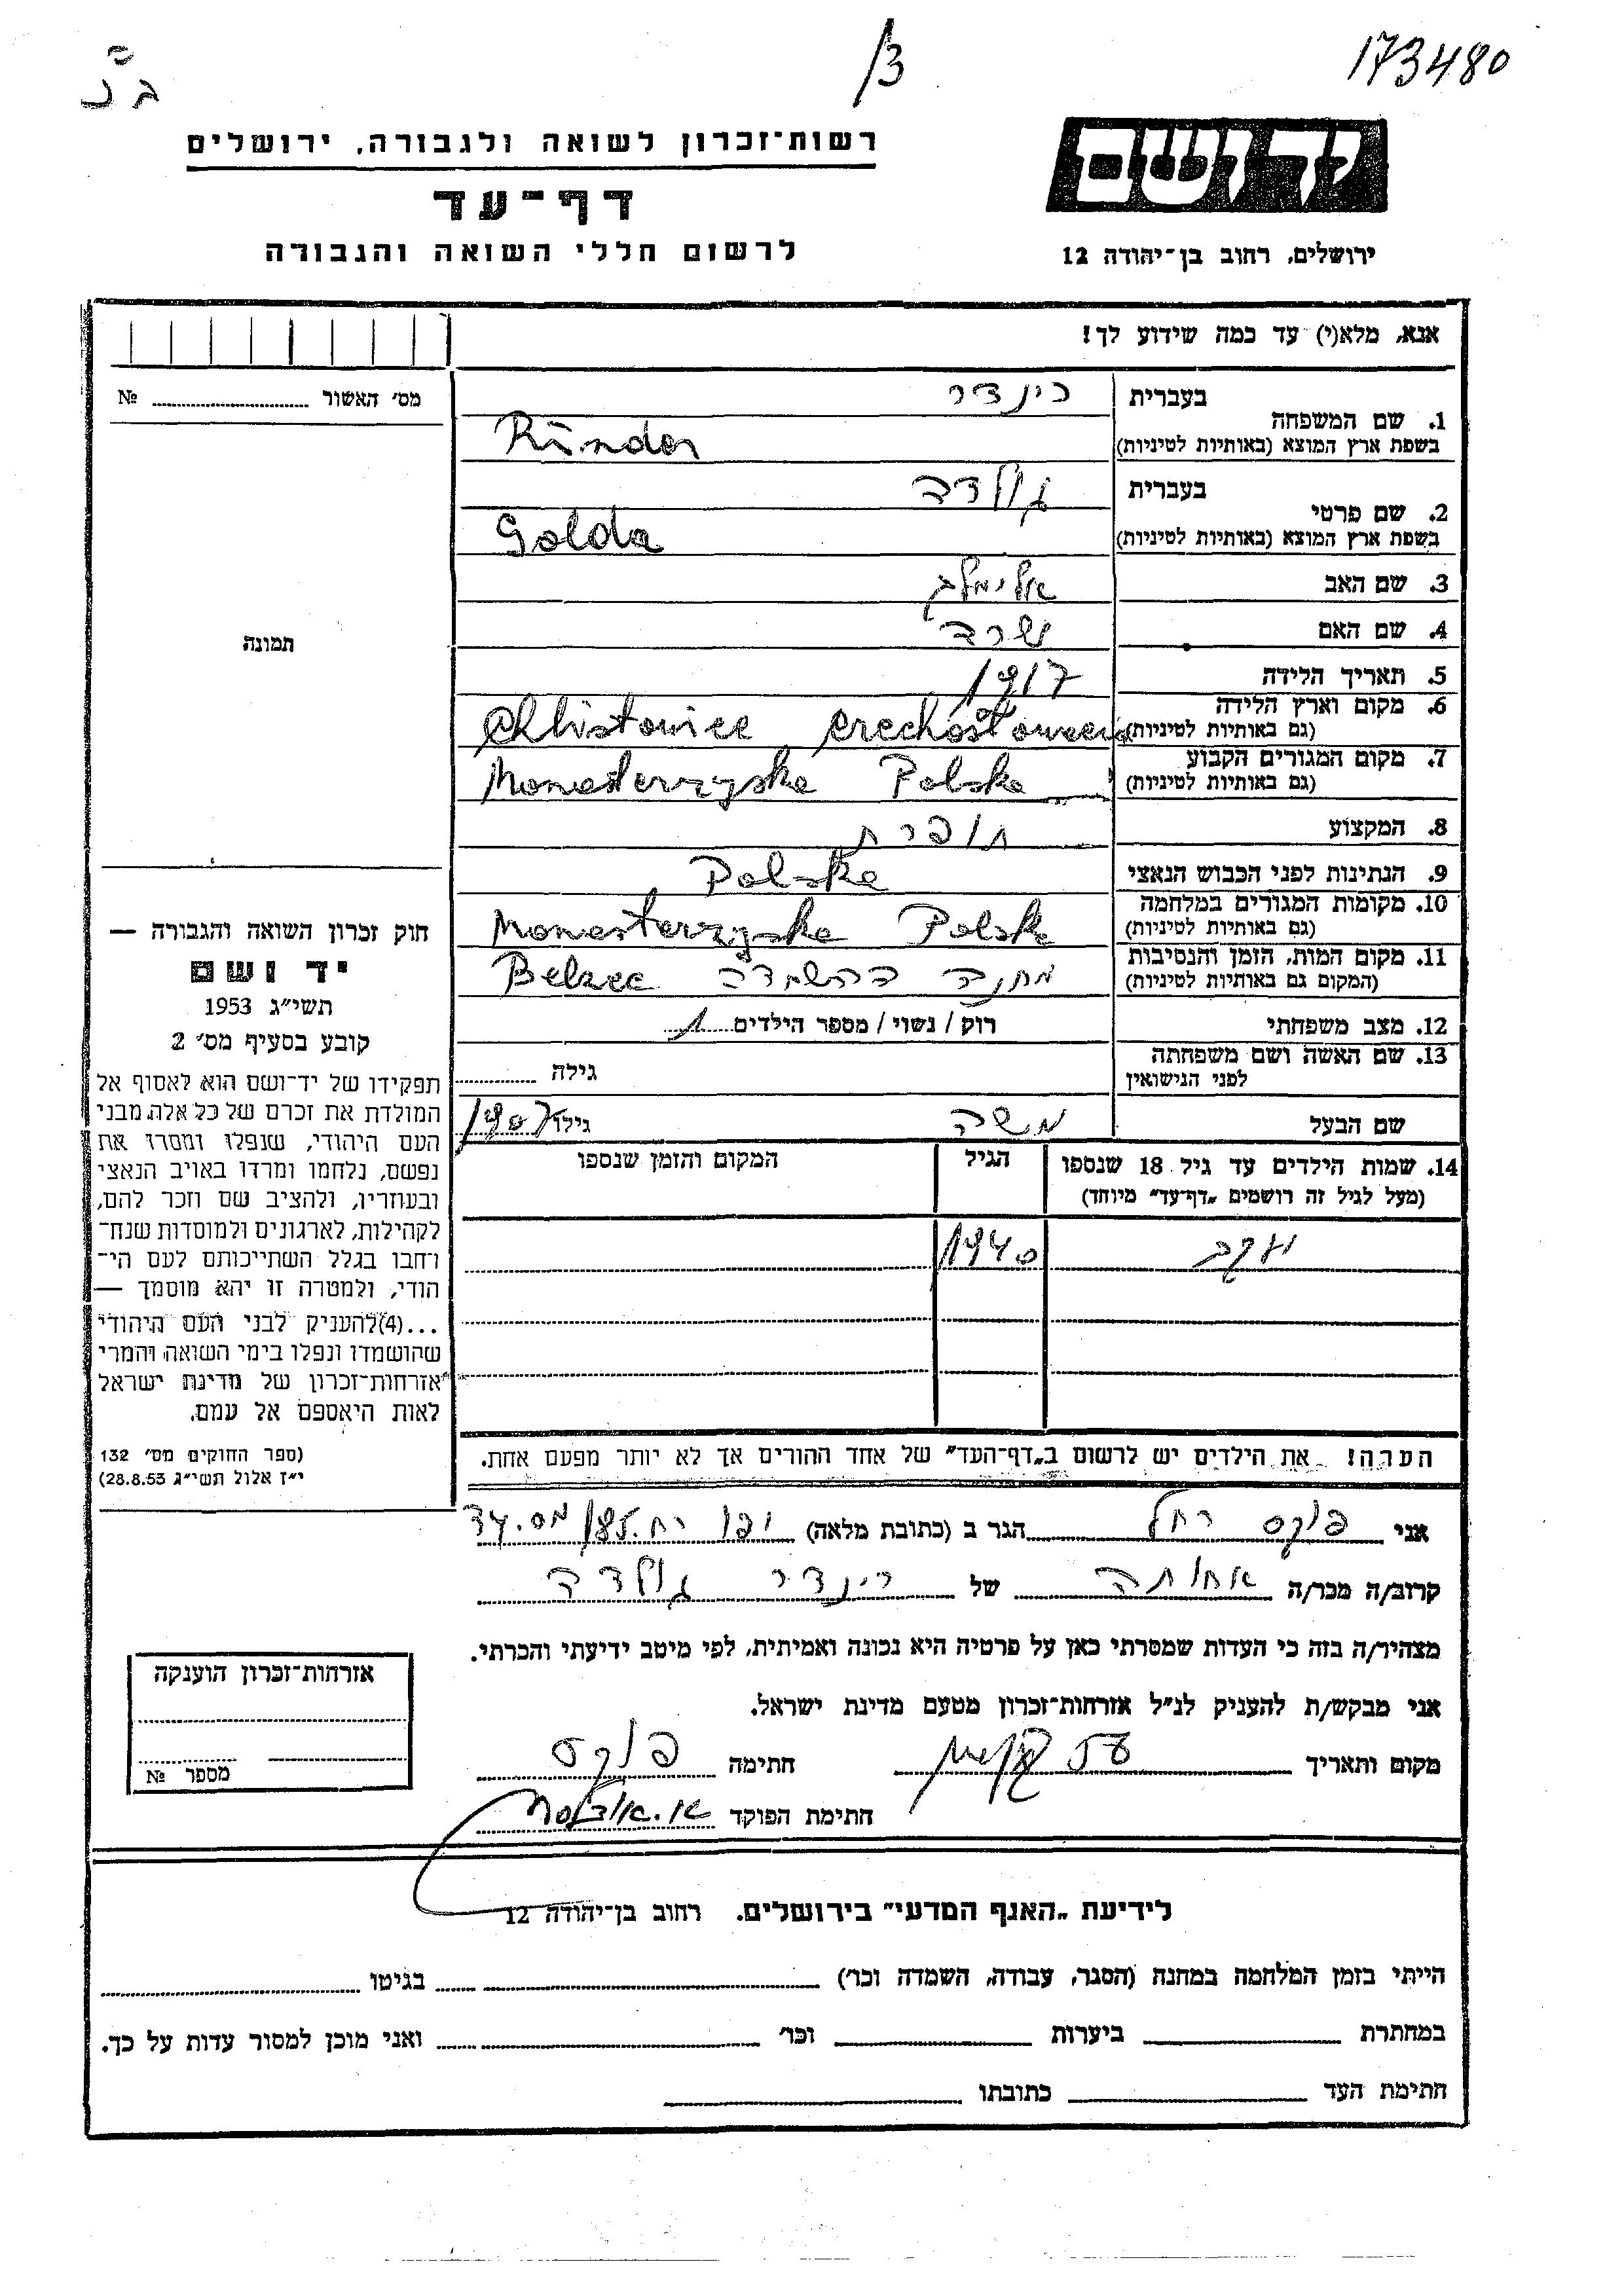 173480
3/
ב נ
יד ושם
ירושלים, רחוב בן־יהודה 12
רשות־זכרון לשואה ולגבורה, ירושלים
דף־עד
לרשום חללי השואה והגבורה
אנא, מלא(י) עד כמה שידוע לך!
מס׳ האשור № 
תמונה
1. שם המשפחה בעברית רינדר
בשפת ארץ המוצא (באותיות לטיניות) Rinder
2. שם פרטי בעברית גולדה
בשפת ארץ המוצא (באותיות לטיניות) Golda
3. שם האב אלימלך
4. שם האם שרה
5. תאריך הלידה 1917
6. מקום וארץ הלידה
(גם באותיות לטיניות)
7. מקום המגורים הקבוע
(גם באותיות לטיניות) Monasterzyska Polska
8. המקצוע תופרת
9. הנתינות לפני הכבוש הנאצי Polska
10. מקומות המגורים במלחמה
(גם באותיות לטיניות) Monasterzyska Polsk
11. מקום המות, הזמן והנסיבות
(המקום גם באותיות לטיניות) מחנה ההשמדה Belzec
12. מצב משפחתי רוק / נשוי / מספר הילדים 1
13. שם האשה ושם משפחתה
לפני הנישואין גילה
שם הבעל משה גילו 1907
14. שמות הילדים עד גיל 18 שנספו הגיל המקום והזמן שנספו
(מעל לגיל זה רושמים „דף־עד״ מיוחד)
יעקב 1940
הערה! את הילדים יש לרשום ב„דף־העד״ של אחד ההורים אך לא יותר מפעם אחת.
חוק זכרון השואה והגבורה —
יד ושם
תשי״ג 1953
קובע בסעיף מס׳ 2
תפקידו של יד־ושם הוא לאסוף אל
המולדת את זכרם של כל אלה מבני
העם היהודי, שנפלו ומסרו את
נפשם, נלחמו ומרדו באויב הנאצי
ובעוזריו, ולהציב שם וזכר להם,
לקהילות, לארגונים ולמוסדות שנח־
רבו בגלל השתייכותם לעם הי־
הודי, ולמטרה זו יהא מוסמך —
...(4)להעניק לבני העם היהודי
שהושמדו ונפלו בימי השואה והמרי
אזרחות־זכרון של מדינת ישראל
לאות היאספם אל עמם.
(ספר החוקים מס׳ 132
י״ז אלול תשי״ג 28.8.53)
אני פוקס רחל הגר ב (כתובת מלאה) יפו רח.
קרוב/ה מכר/ה אחותה של רינדר גולדה
מצהיר/ה בזה כי העדות שמסרתי כאן על פרטיה היא נכונה ואמיתית, לפי מיטב ידיעתי והכרתי.
אני מבקש/ת להעניק לנ״ל אזרחות־זכרון מטעם מדינת ישראל.
מקום ותאריך חתימה פוקס
חתימת הפוקד
אזרחות־זכרון הוענקה
מספר №
לידיעת „האגף המדעי״ בירושלים. רחוב בן־יהודה 12
הייתי בזמן המלחמה במחנה (הסגר, עבודה, השמדה וכו׳) בגיטו
במחתרת ביערות וכו׳ ואני מוכן למסור עדות על כך.
חתימת העד כתובתו